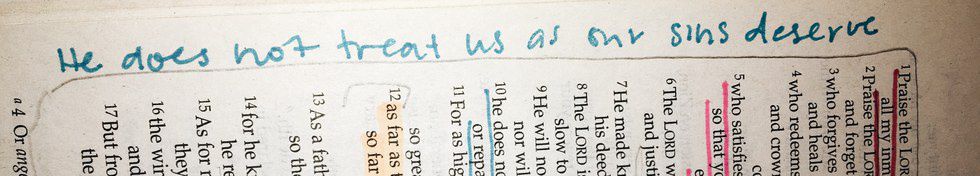 He does not treat us as our sins deserve
1 Praise the
all my
2 Praise the
and forget
3 who forgives
and heals
4 who redeems
and crown
5 who satisfies
so that
6 The LORD
and
7 He made
his
8 The LORD
slow to
9 He will
nor will
10 he does
or
11 For as
so
12 as far as
so far
13 As a
so
14 for he
he
15 As for
they
16 the
and
17 But
the
a 4 Or